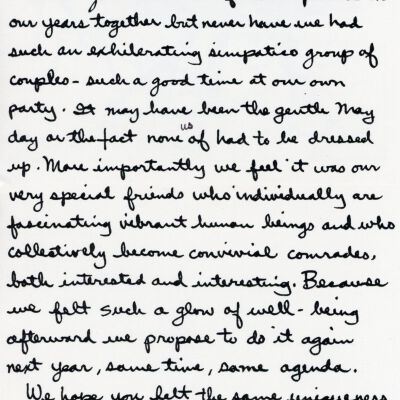 our years together but never have we had
such an exhilerating simpatico group of
couples - such a good time at our own
party. It may have been the gentle May
day or the fact none us of had to be dressed
up. More importantly we feel it was our
very special friends who individually are
fascinating vibrant human beings and who
collectively become convivial comrades,
both interested and interesting. Because
we felt such a glow of well-being
afterward we propose to do it again
next year, same time, same agenda.
We hope you felt the same uniqueness